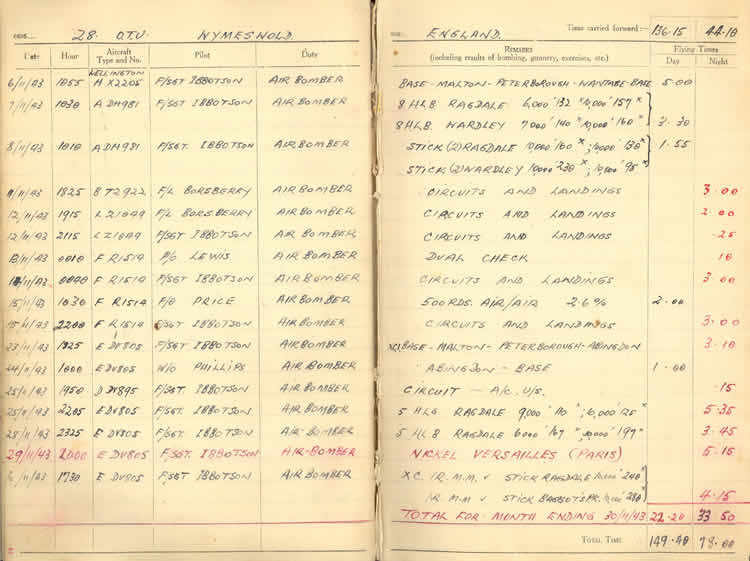 28. O.T.U. WYMESWOLD.
Date Hour Aircraft Type and No. Pilot Duty
WELLINGTON
6/11/43 1055 H X2205 F/SGT IBBOTSON AIR BOMBER
7/11/43 1030 A DM981 F/SGT IBBOTSON AIR BOMBER
8/11/43 1010 A DM981 F/SGT. IBBOTSON AIR BOMBER
11/11/43 1825 B T2922 F/L BORSBERRY AIR BOMBER
12/11/43 1915 L Z1049 F/L BORSBERRY AIR BOMBER
12/11/43 2115 L Z1049 F/SGT IBBOTSON AIR BOMBER
13/11/43 0010 F R1514 P/O LEWIS AIR BOMBER
0040 F R1514 F/SGT IBBOTSON AIR BOMBER
15/11/43 1030 F R1514 F/O PRICE AIR BOMBER
15/11/43 2200 F R1514 F/SGT IBBOTSON AIR BOMBER
23/11/43 1825 E DV805 F/SGT IBBOTSON AIR BOMBER
24/11/43 1000 E DV805 W/O PHILLIPS AIR BOMBER
25/11/43 1950 D DV895 F/SGT. IBBOTSON AIR BOMBER
25/11/43 2205 E DV805 F/SGT. IBBOTSON AIR BOMBER
28/11/43 2325 E DV805 F/SGT. IBBOTSON AIR-BOMBER
29/11/43 2000 E DV805 F/SGT. IBBOTSON AIR-BOMBER
1730 E DV805 F/SGT IBBOTSON AIR BOMBER
ENGLAND. Time carried forward:— 136.15 44.10
Remarks (including results of bombing, gunnery, exercises, etc.) Flying Times
Day Night
BASE-MALTON-PETERBOROUGH-WANTAGE-BASE 5.00
8 H.L.B. RAGDALE 6,000' 132 × 10,000' 157 ×
8 H.L.B. WARDLEY 7,000' 140 × 10,000' 160 × 3.30
STICK (2) RAGDALE 10,000' 160 ×; 10,000' 130 × 1.55
STICK (2) WARDLEY 10,000' 230 ×; 10,000' 95 ×
CIRCUITS AND LANDINGS 3.00
CIRCUITS AND LANDINGS 2.00
CIRCUITS AND LANDINGS .25
DUAL CHECK 10
CIRCUITS AND LANDINGS 3.00
500 RDS. AIR/AIR 2.6% 2.00
CIRCUITS AND LANDINGS 3.00
XC. BASE-MALTON-PETERBOROUGH-ABINGDON 3.10
ABINGDON - BASE 1.00
CIRCUIT — A/C. U/S. .15
5 HLB RAGDALE 9,000' 110 ×; 10,000' 125 × 5.35
5 HLB RAGDALE 6,000' 167 × 10,000' 197 × 3.45
NICKEL VERSAILLES (PARIS) 5.15
X.C. I.R. M.M. STICK RAGDALE 10,000' 240 ×
I.R. M.M STICK 4.15
TOTAL FOR MONTH ENDING 30/11/43 22.20 33 50
Total Time 149.40 78.00